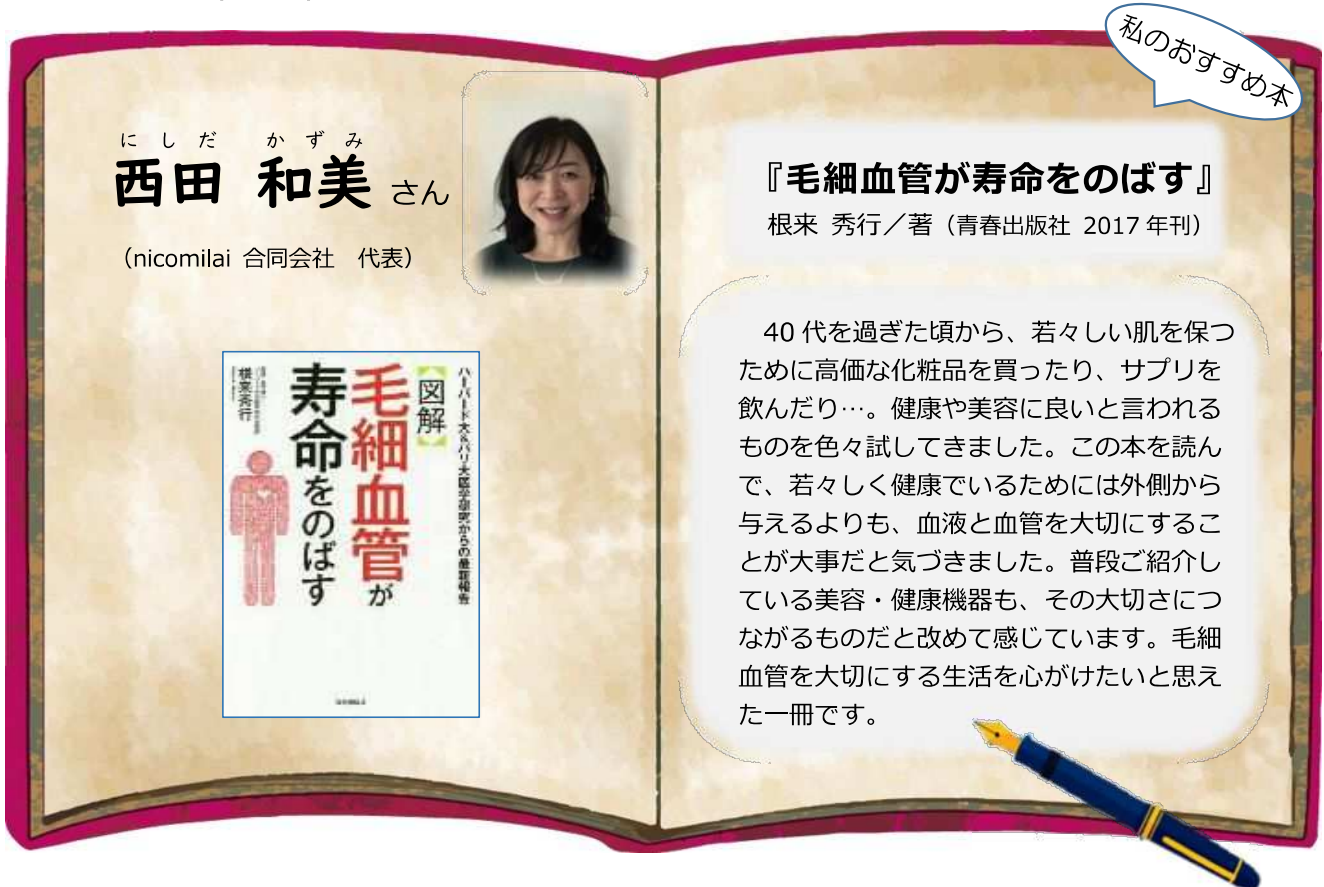 私のおすすめ本
にしだ かずみ
西田 和美 さん
（nicomilai 合同会社　代表）
ハーバード大&パリ大医学研究からの最新報告
【図解】
毛細血管が
寿命をのばす
根来秀行
『毛細血管が寿命をのばす』
根来 秀行／著（青春出版社 2017 年刊）
40 代を過ぎた頃から、若々しい肌を保つ
ために高価な化粧品を買ったり、サプリを
飲んだり…。健康や美容に良いと言われる
ものを色々試してきました。この本を読ん
で、若々しく健康でいるためには外側から
与えるよりも、血液と血管を大切にするこ
とが大事だと気づきました。普段ご紹介し
ている美容・健康機器も、その大切さにつ
ながるものだと改めて感じています。毛細
血管を大切にする生活を心がけたいと思え
た一冊です。